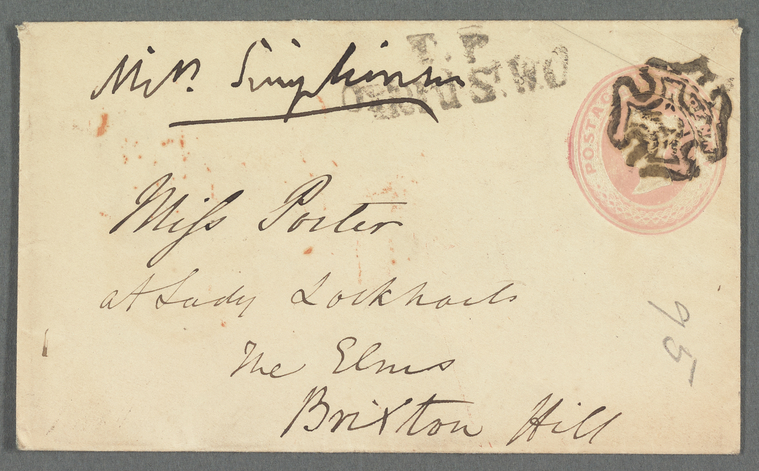 Mrs. Simpkinson
T.P
Oxford St. W.O
POSTAG
Miss Porter
at Lady Lockharts
The Elms
Brixton Hill
95